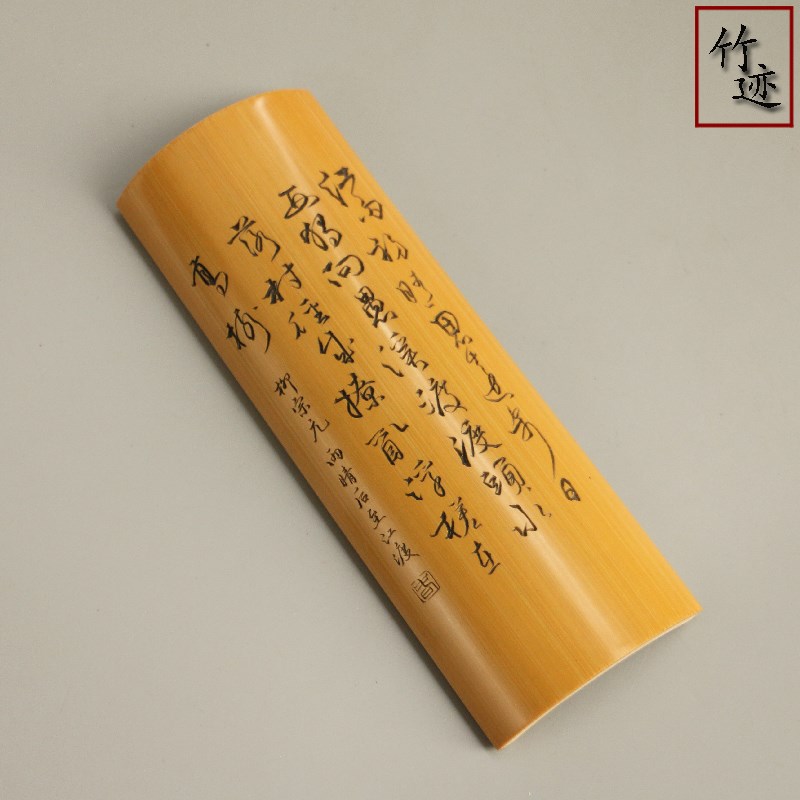 竹迹
江雨初晴思遠步日
西獨向愚溪渡渡頭水
落村徑成撩亂浮槎在
高樹
柳宗元 雨晴后至江渡